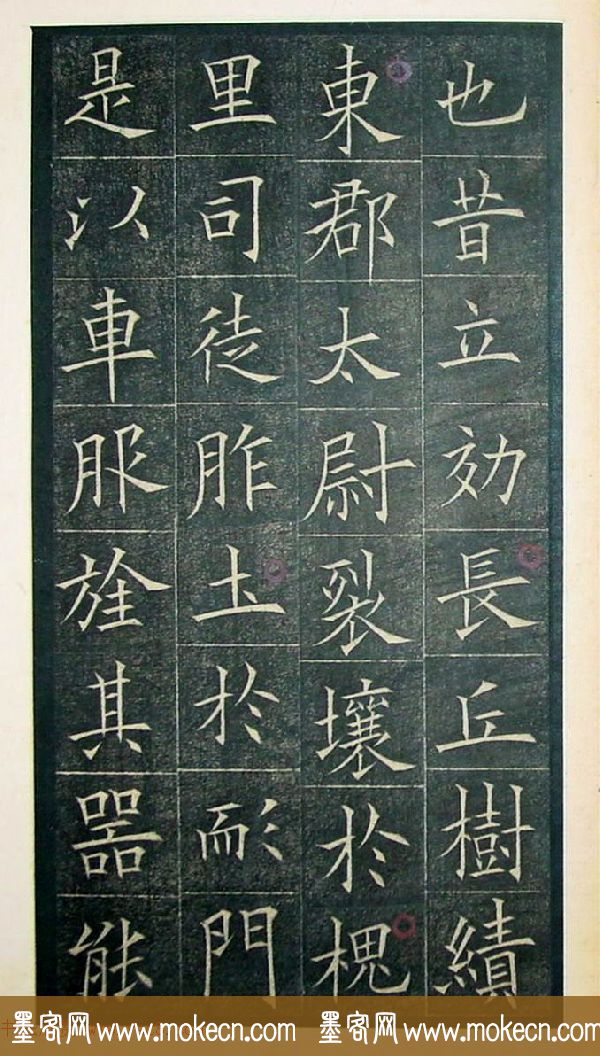 也昔立効長丘樹績
東郡太尉裂壤於槐
里司徒胙土於耏門
是以車服旌其器能
墨客网 www.mokecn.com 墨客网 www.mokecn.com